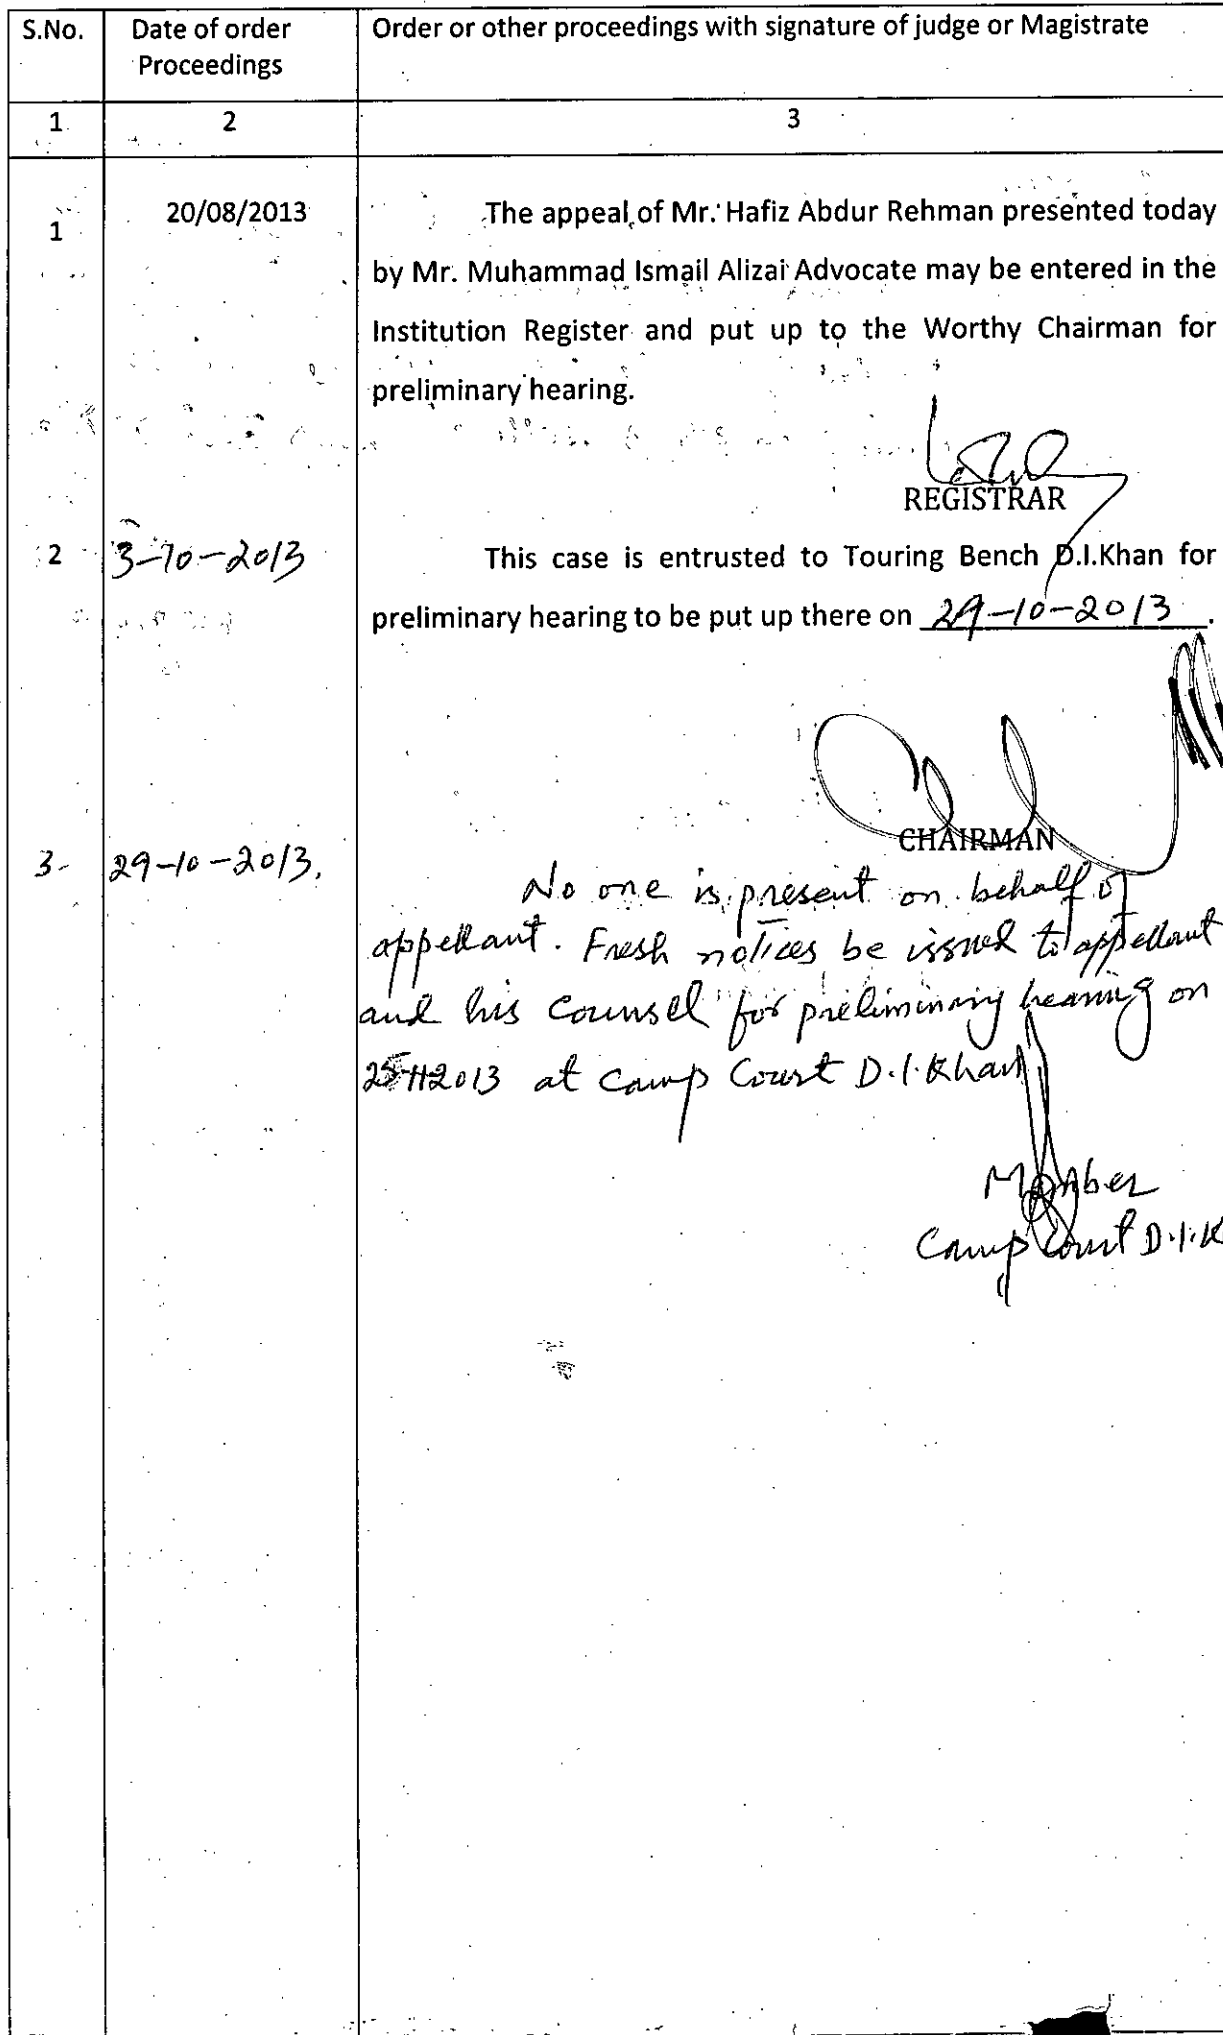 S.No. Date of order Order or other proceedings with signature of judge or Magistrate
Proceedings
1 2 3
1 20/08/2013 The appeal of Mr. Hafiz Abdur Rehman presented today
by Mr. Muhammad Ismail Alizai Advocate may be entered in the
Institution Register and put up to the Worthy Chairman for
preliminary hearing.
REGISTRAR
2 3-10-2013 This case is entrusted to Touring Bench D.I.Khan for
preliminary hearing to be put up there on 29-10-2013.
CHAIRMAN
3- 29-10-2013. No one is present on behalf of
appellant. Fresh notices be issued to appellant
and his counsel for preliminary hearing on
25-11-2013 at camp Court D.I.Khan
Member
Camp Court D.I.K